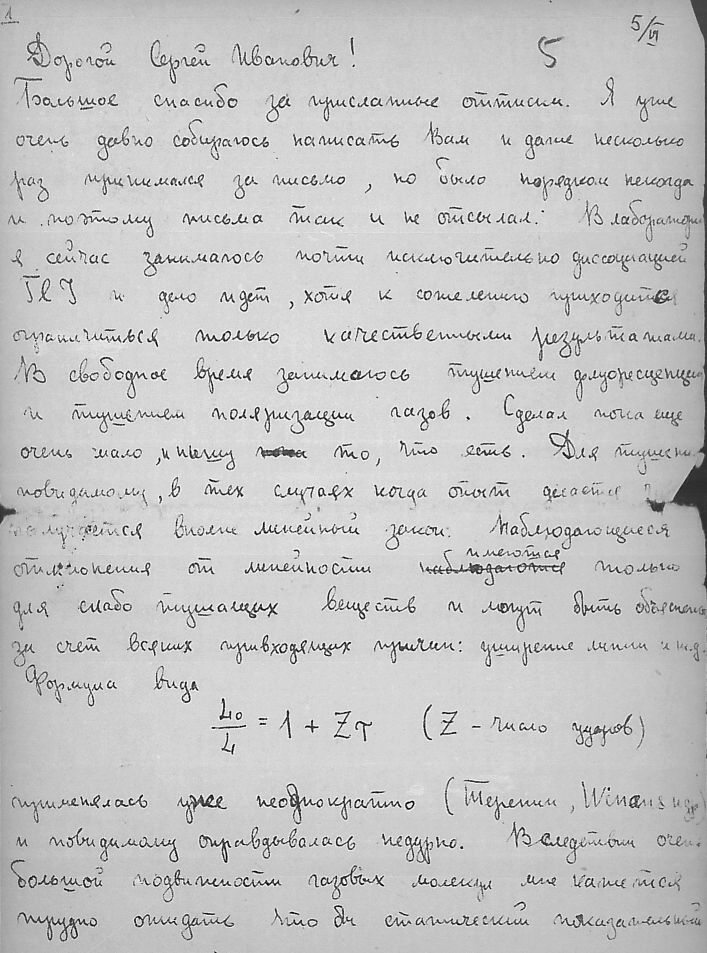 1
5/VI
5
Дорогой Сергей Иванович!
Большое спасибо за присланные оттиски. Я уже
очень давно собираюсь написать Вам и даже несколько
раз принимался за письмо, но было порядком некогда
и поэтому письма так и не отсылал. В лаборатории
я сейчас занимаюсь почти исключительно диссоциацией
TlJ и дело идет, хотя к сожелению приходится
ограничиться только качественными результатами.
В свободное время занимаюсь тушением флуоресценции
и тушением поляризации газов. Сделал пока еще
очень мало, и пишу то, что есть. Для тушения
повидимому, в тех случаях когда опыт делается
получается вполне линейный закон. Наблюдающиеся
отклонения от линейности имеются только
для слабо тушащих веществ и могут быть объяснены
за счет всяких привходящих причин: уширение линии и т.д.
Формула вида
L₀/L = 1 + Zτ (Z – число ударов)
применялась уже неоднократно (Теренин, Winans и др)
и повидимому оправдывалась недурно. Вследствии очень
большой подвижности газовых молекул мне кажется
трудно ожидать что бы статический показательный